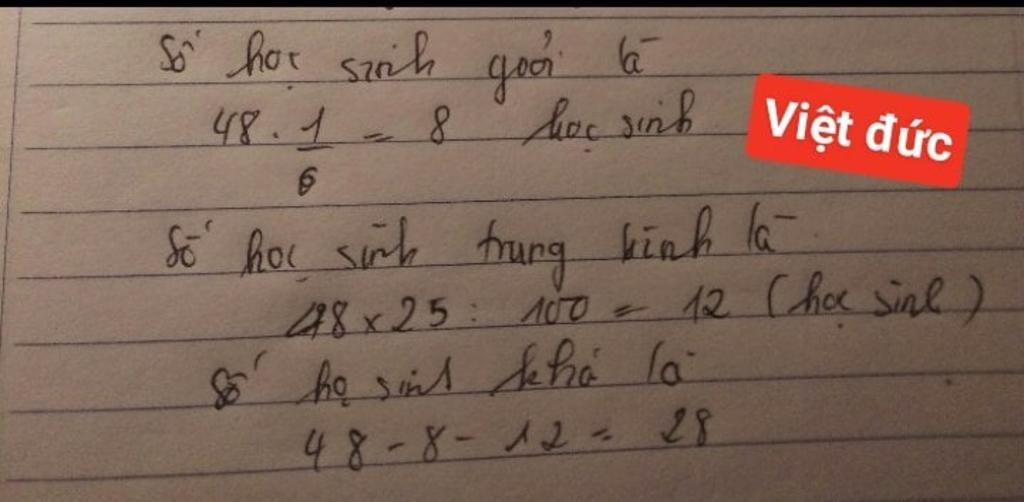 Số học sinh giỏi là
48 . 1/6 = 8 học sinh
Việt đức
Số học sinh trung bình là
48 x 25 : 100 = 12 (học sinh)
Số họ sinh khá là
48 - 8 - 12 = 28